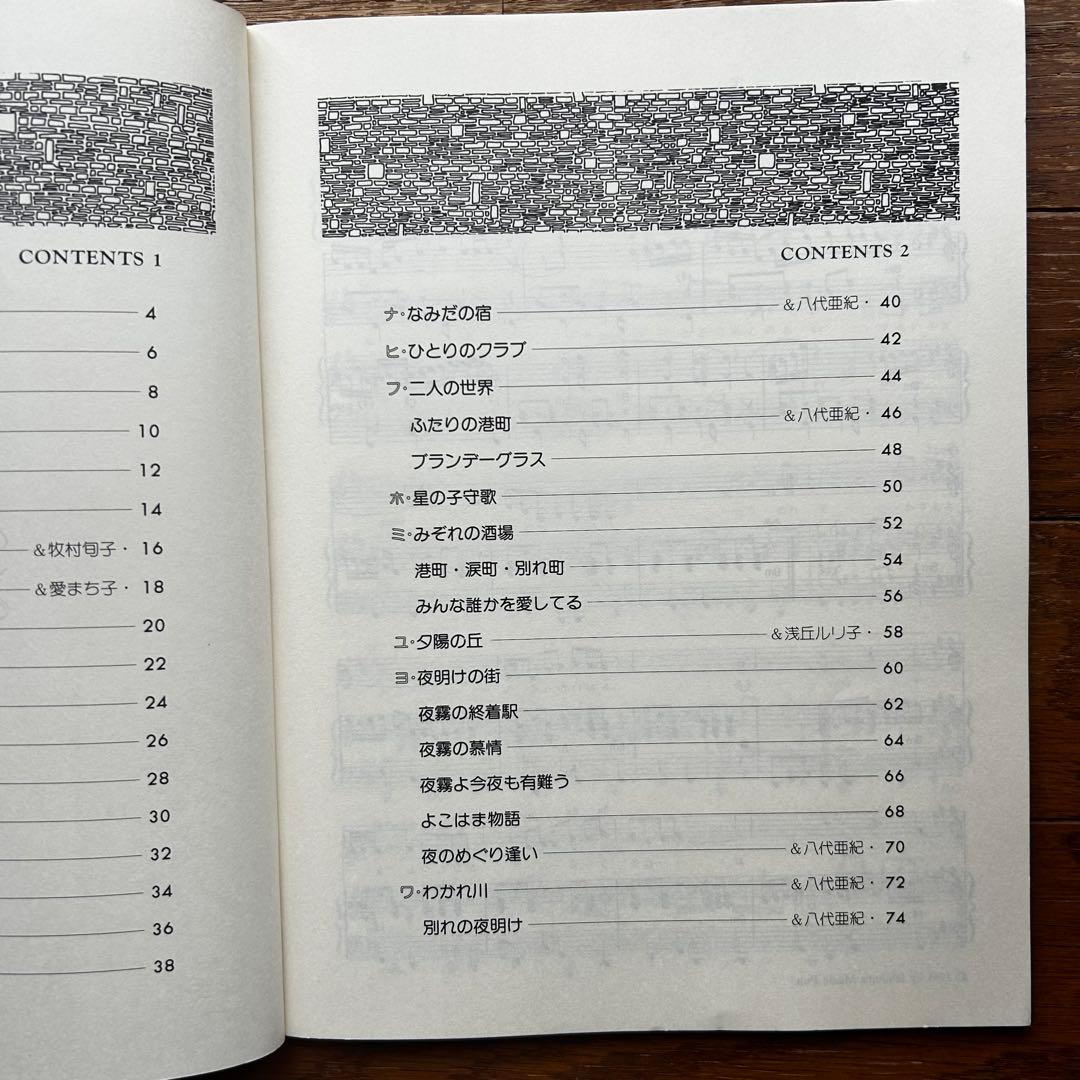 CONTENTS 1
4
6
8
10
12
14
&牧村旬子・ 16
&愛まち子・ 18
20
22
24
26
28
30
32
34
36
38
CONTENTS 2
ナ・なみだの宿 &八代亜紀・ 40
ヒ・ひとりのクラブ 42
フ・二人の世界 44
ふたりの港町 &八代亜紀・ 46
ブランデーグラス 48
ホ・星の子守歌 50
ミ・みぞれの酒場 52
港町・涙町・別れ町 54
みんな誰かを愛してる 56
ユ・夕陽の丘 &浅丘ルリ子・ 58
ヨ・夜明けの街 60
夜霧の終着駅 62
夜霧の慕情 64
夜霧よ今夜も有難う 66
よこはま物語 68
夜のめぐり逢い &八代亜紀・ 70
ワ・わかれ川 &八代亜紀・ 72
別れの夜明け &八代亜紀・ 74